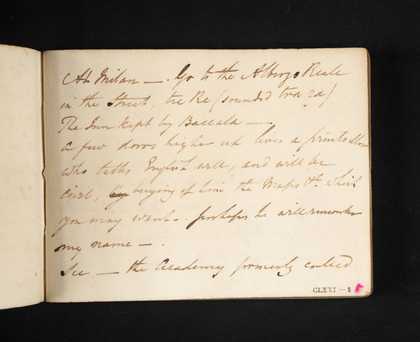 At Milan —. Go to the Albergo Reale
in the Street, tre Re (sounded tra ra)
The Inn kept by Baccala —.
a few doors higher up lives a printseller
who talks English well, and will be
Civil, by buying of him the Maps &c. which
you may want. perhaps he will remember
my name —.
See — the Academy formerly called
CLXXI — 1